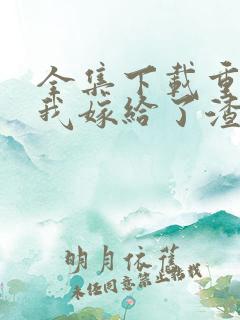 全集下载重
我嫁给了渣
明月依旧
未经同意禁止转载